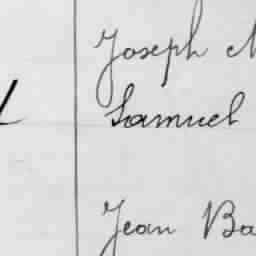 Joseph
Samuel
Jean Ba